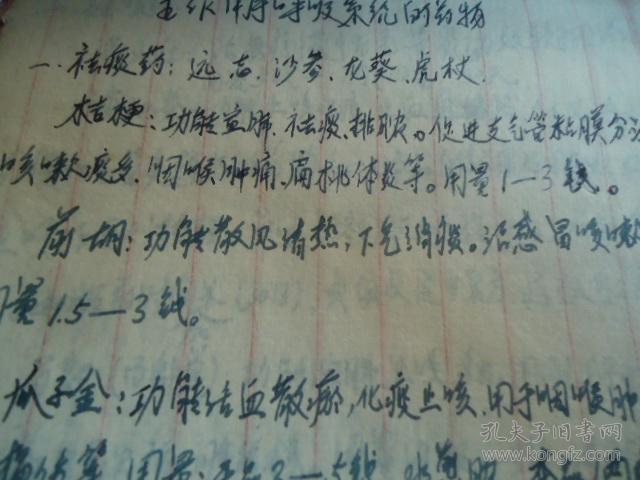 主要作用于呼吸系统的药物
一.祛痰药：远志、沙参、龙葵、虎杖.
桔梗：功能宣肺、祛痰、排脓。促进支气管粘膜分泌
咳嗽痰多、咽喉肿痛、扁桃体炎等。用量1—3钱。
前胡：功能散风清热，下气消痰。治感冒咳嗽
用量1.5—3钱。
瓜子金：功能活血散瘀，化痰止咳，用于咽喉肿
用量：干品3—5钱
孔夫子旧书网